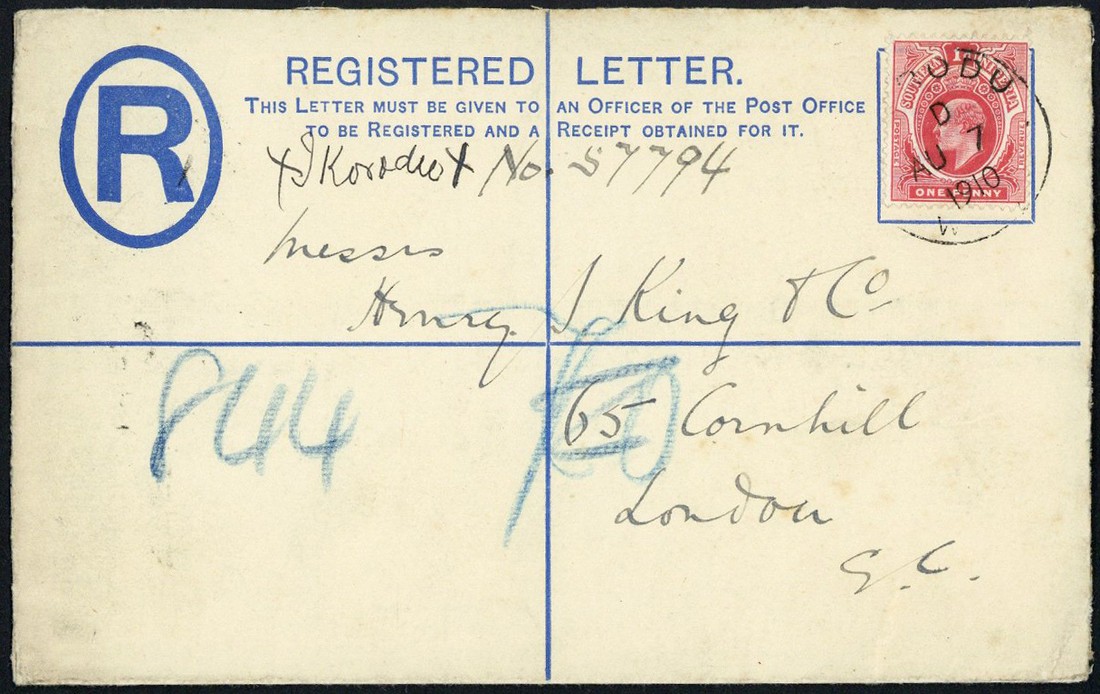 R
REGISTERED LETTER.
THIS LETTER MUST BE GIVEN TO AN OFFICER OF THE POST OFFICE
TO BE REGISTERED AND A RECEIPT OBTAINED FOR IT.
SOUTHERN NIGERIA
POSTAGE
REVENUE
ONE PENNY
D
AU 7
1910
+Ikorodu+ No. 57794
Messrs
Henry S King & Co
65 Cornhill
London
E.C.
844